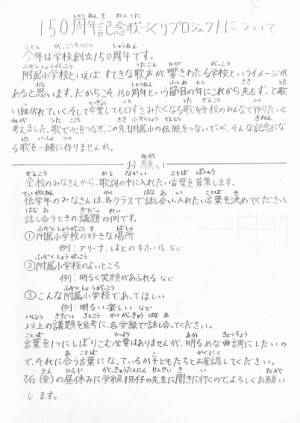 150周年記念歌づくりプロジェクトについて
今年は学校創立150周年です。
附属小学校といえば、すてきな歌声が響きわたる学校というイメージが
あると思います。だからこそ、150周年という節目の年にこれから先もずっと歌
い継がれていく、そして卒業してもロずさみたくなる歌を全校のみんなで作りたいと
考えました。歌で心をつなぎ、この先も附属小の伝統をつないでいく、そんな記念にな
る歌を一緒に作りませんか。
お願い
全校のみなさんから、歌詞の中に入れたい言葉を募集します。
低学年のみなさんは、各クラスで話し合い入れたい言葉を決めてください。
話し合うときの議題の例です。
①附属小学校の好きな場所
例:アリーナ、はとの子ホール など
②附属小学校のよいところ
例:明るく笑顔があふれる など
③こんな附属小学校であってほしい
例:明るい・楽しい など
以上の議題を参考に、各学級で話し合ってください。
言葉を1つにしぼりこむ必要はありませんが、明るめな曲調にしたいの
で、それに合う言葉になっているか子どもたちと確認してください。
7/12(金)の昼休みに学級担任の先生に聞きに行くので、よろしくお願い
します。